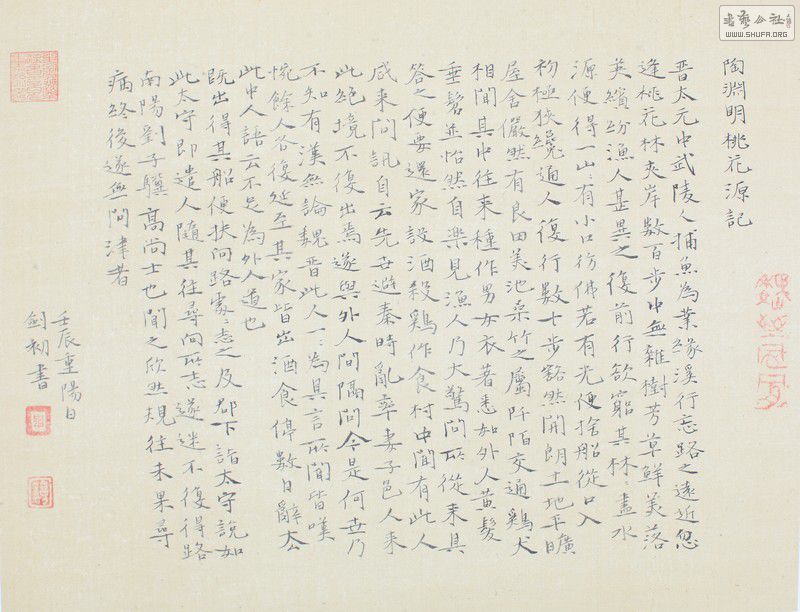 陶淵明桃花源記
晉太元中武陵人捕魚為業緣溪行忘路之遠近忽
逢桃花林夾岸數百步中無雜樹芳草鮮美落
英繽紛漁人甚異之復前行欲窮其林〻盡水
源便得一山〻有小口彷彿若有光便捨船從口入
初極狹纔通人復行數十步豁然開朗土地平曠
屋舍儼然有良田美池桑竹之屬阡陌交通鷄犬
相聞其中往來種作男女衣著悉如外人黃髮
垂髫並怡然自樂見漁人乃大驚問所從來具
答之便要還家設酒殺鷄作食村中聞有此人
咸來問訊自云先世避秦時亂率妻子邑人來
此絕境不復出焉遂與外人間隔問今是何世乃
不知有漢無論魏晉此人一〻為具言所聞皆嘆
惋餘人各復延至其家皆出酒食停數日辭去
此中人語云不足為外人道也
既出得其船便扶向路處〻志之及郡下詣太守說如
此太守即遣人隨其往尋向所志遂迷不復得路
南陽劉子驥高尚士也聞之欣然規往未果尋
病終後遂無問津者
壬辰重陽日
劍初書
書藝公社
WWW.SHUFA.ORG